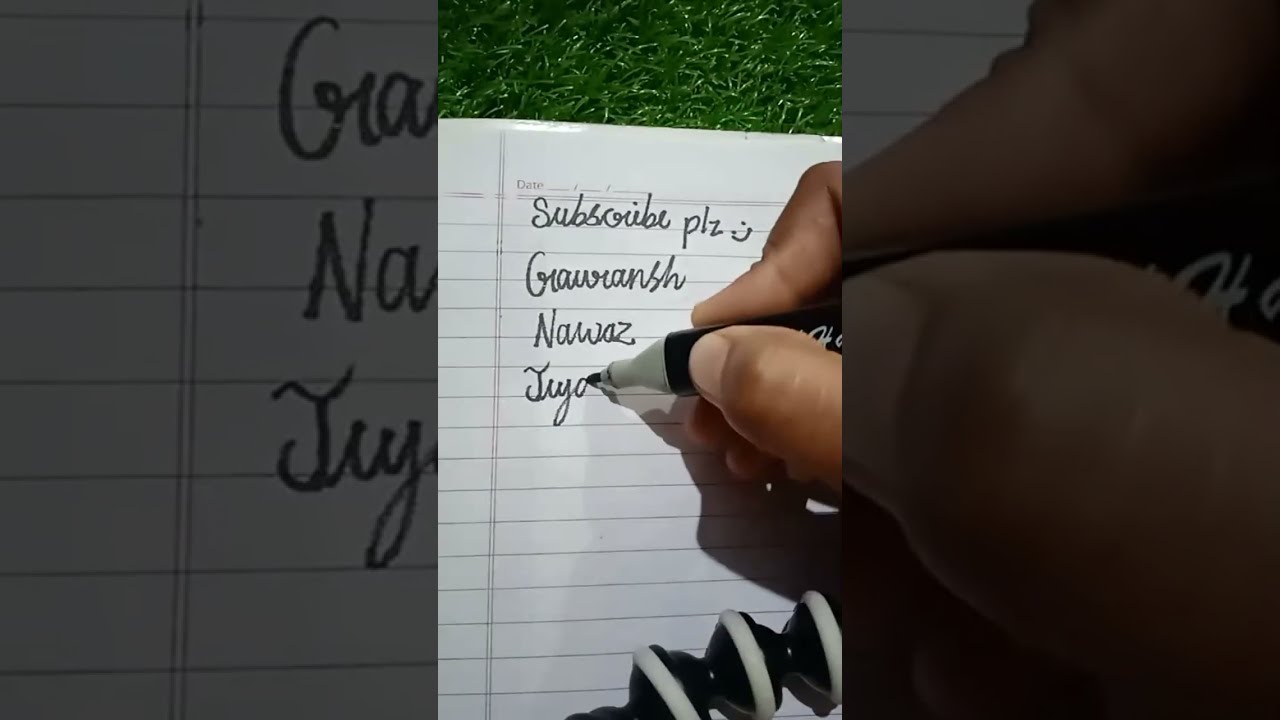 Date __/__/__
Subscribe plz :)
Gauransh
Nawaz